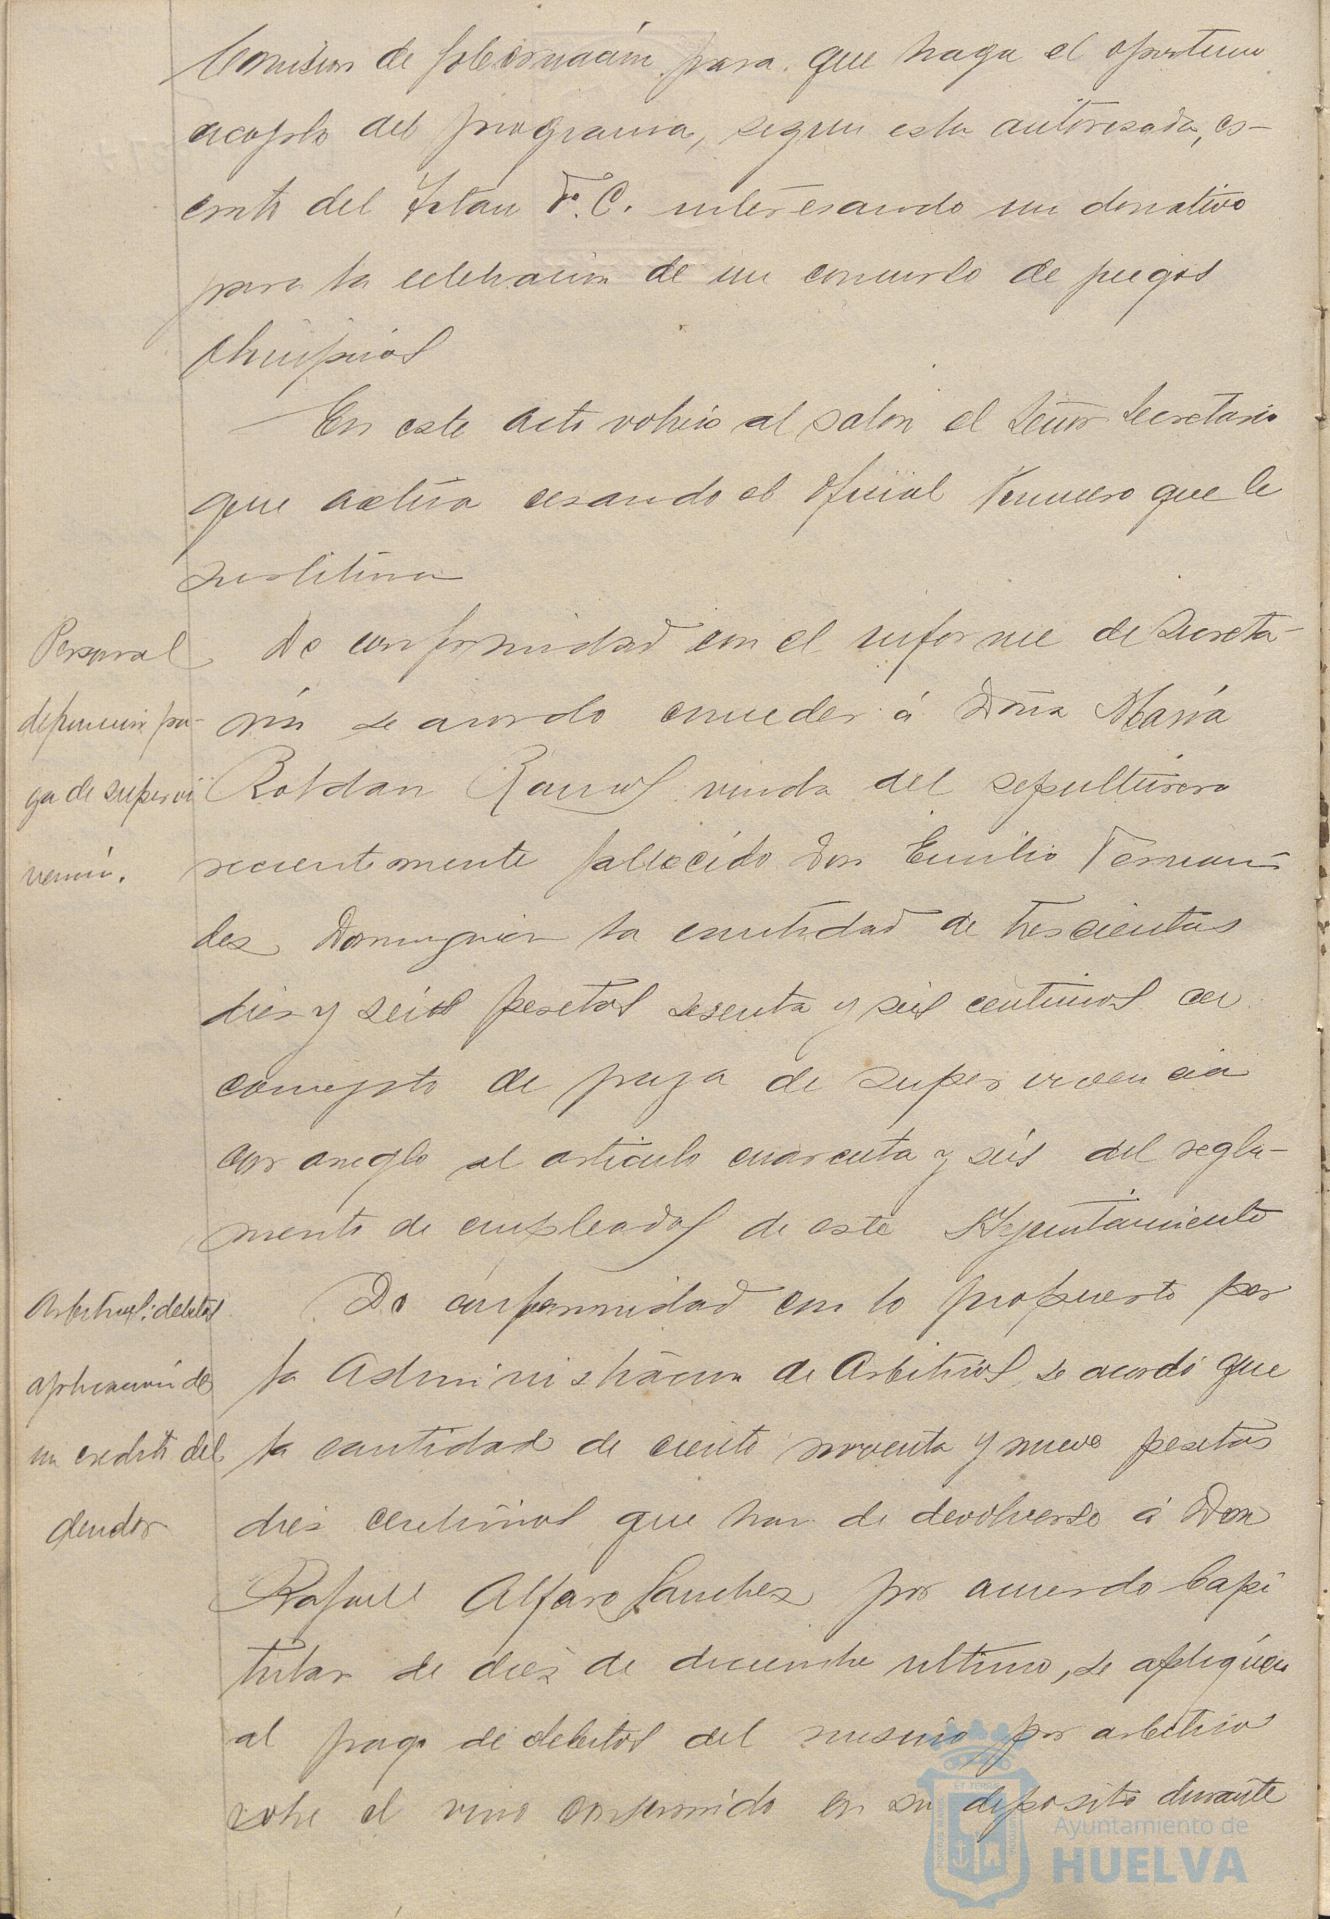 Comision de Gobernación para que haga el oportuno
acoplo del programa, segun esta autorisada, es-
crito del Titan F.C. interesando un donativo
para la celebracion de un concurso de juegos
olimpicos
En este acto volvio al salon el Señor Secretario
que actúa cesando el Oficial Primero que le
sustituia
Personal
defuncion pa-
ga de supervi
vencia.
De conformidad con el informe de Secreta-
ria se acordo conceder á Doña María
Roldan Ramos viuda del sepulturero
recientemente fallecido Don Emilio Fernan-
dez Dominguez la cantidad de trescientas
dies y seis pesetas sesenta y seis centimos en
concepto de paga de supervivencia
con areglo al articulo cuarenta y seis del regla-
mento de empleados de este Ayuntamiento
Arbitrios: debitos
aplicacion de
un credito del
deudor
De conformidad con lo propuesto por
la Administracion de Arbitrios se acordó que
la cantidad de ciento noventa y nueve pesetas
dies centimos que han de devolverse á Don
Rafael Alfaro Sanchez por acuerdo Capi
tular de dies de diciembre ultimo, se apliquen
al pago de debitos del mismo por arbitrio
sobre el vino consumido en su deposito durante
Ayuntamiento de
HUELVA